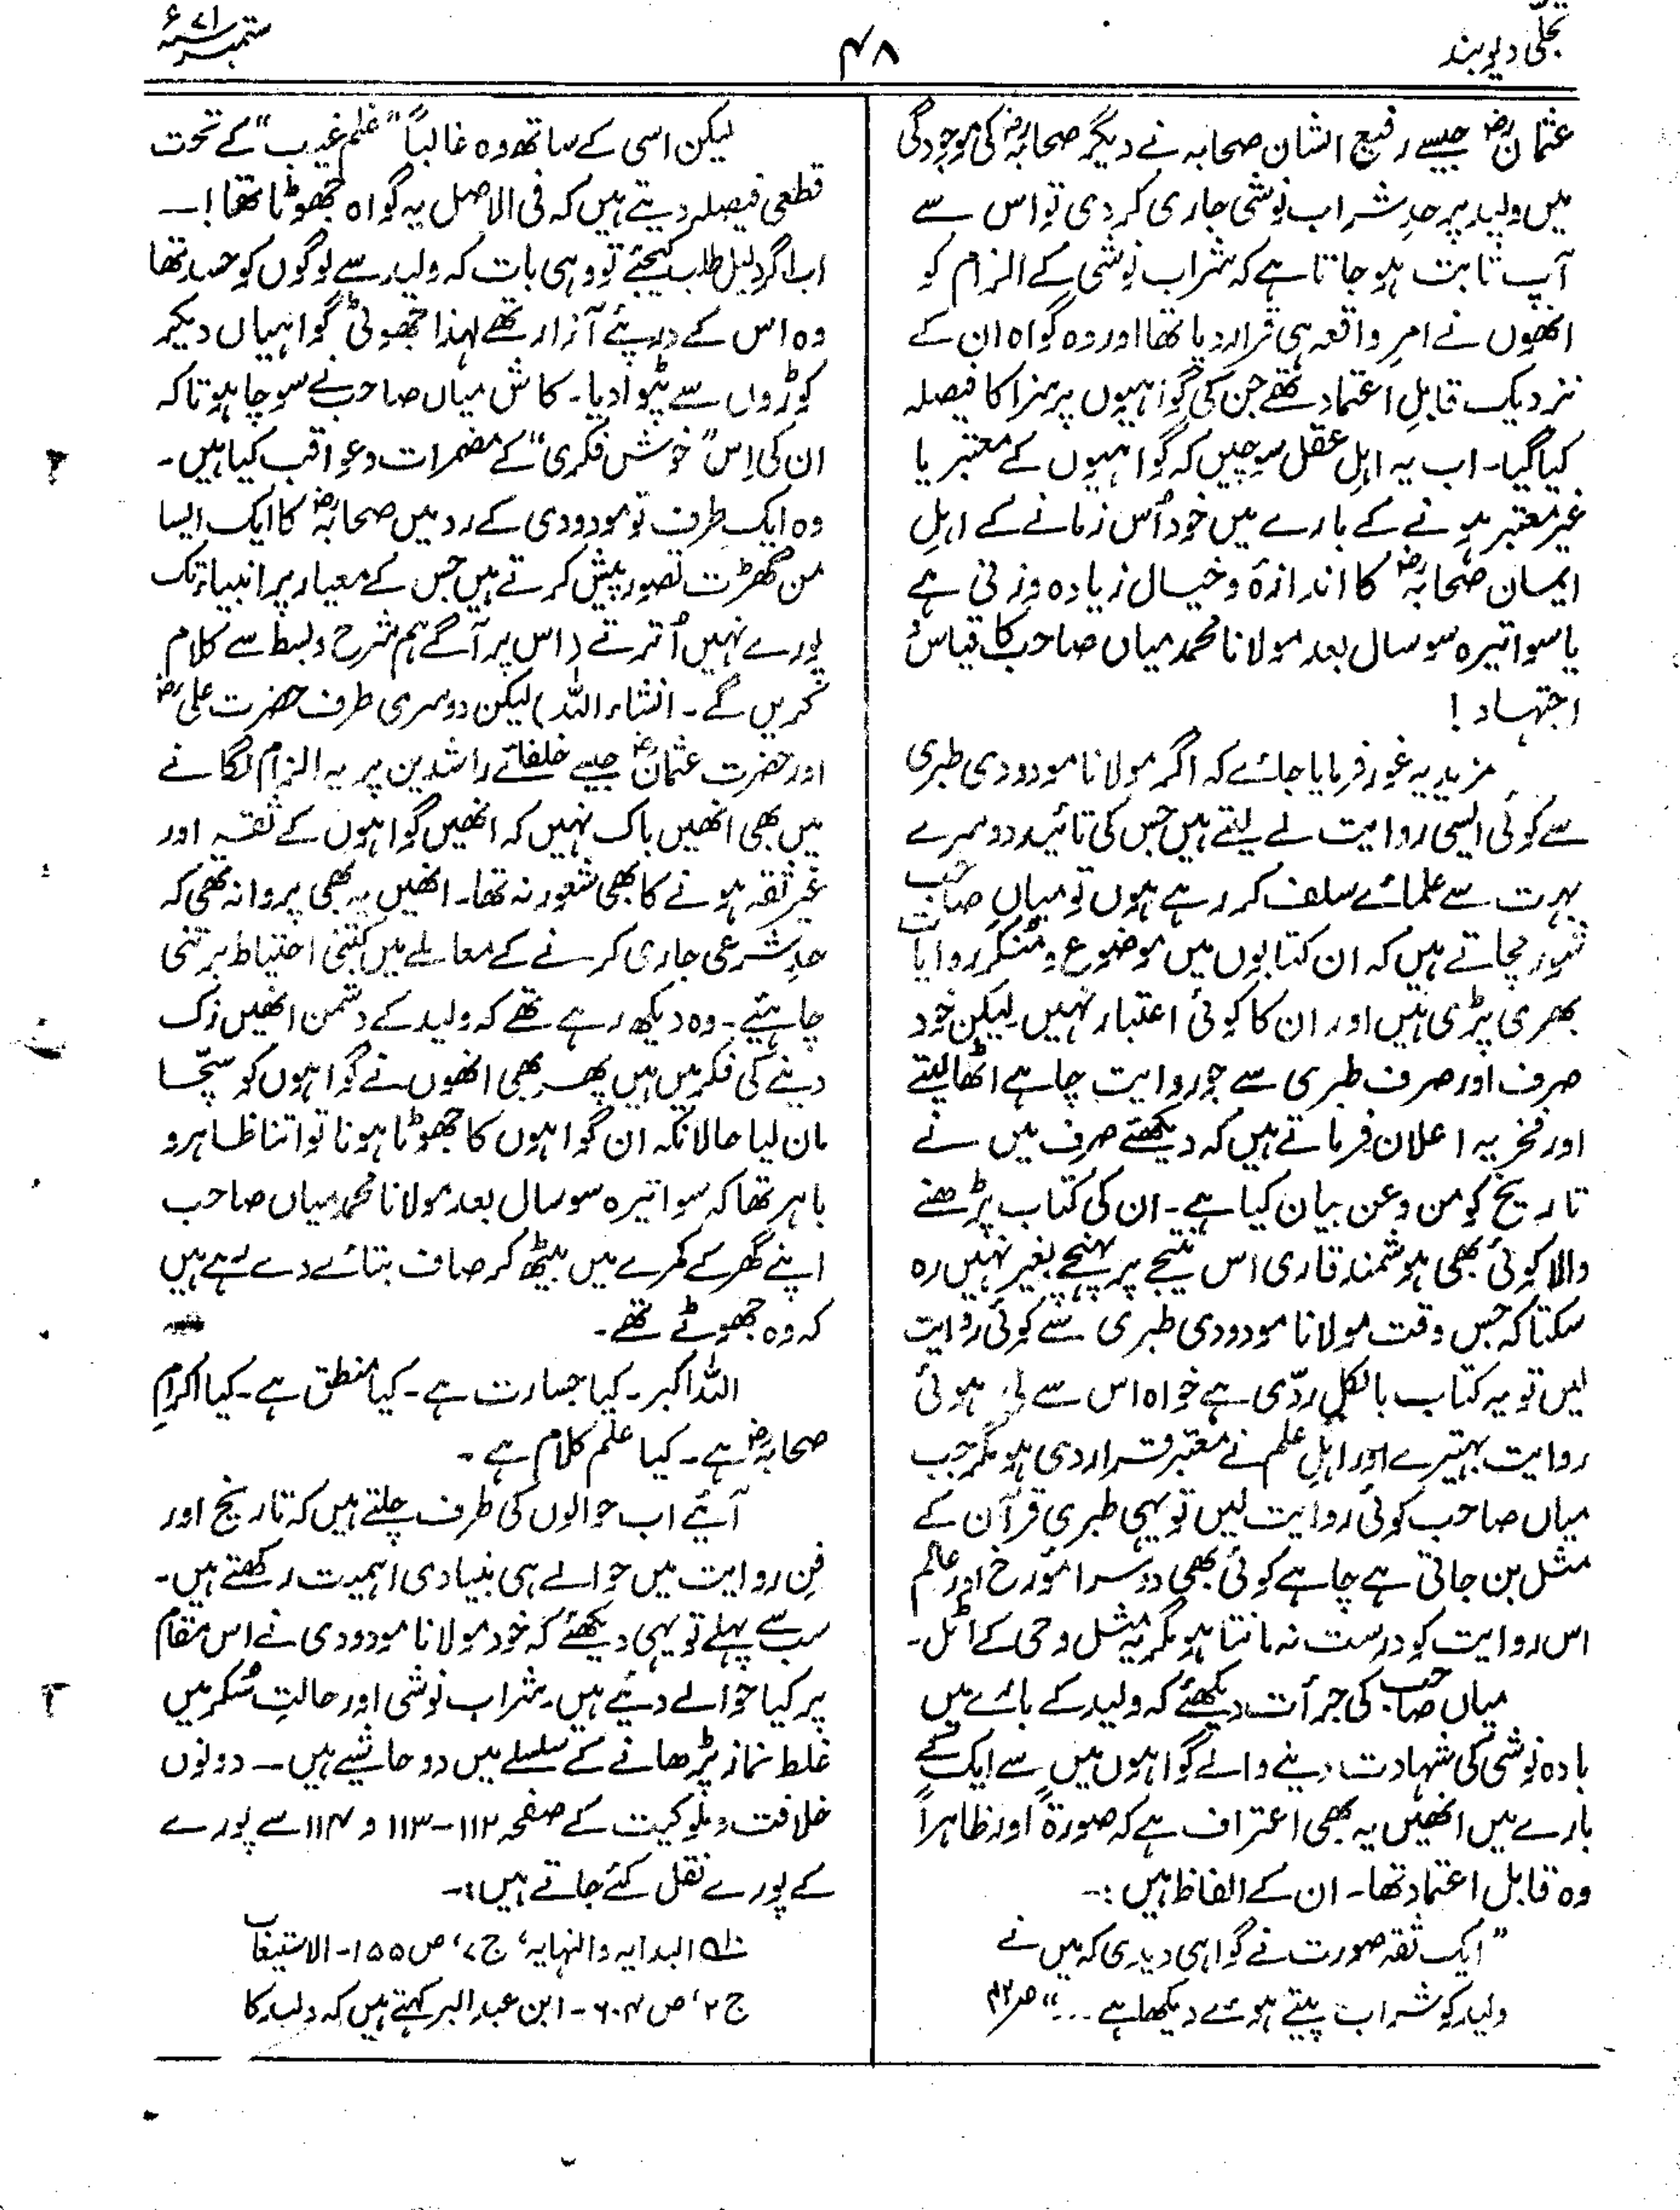 تجلی دیوبند
۴۸
ستمبر ۷۱ء
عثمانؓ جیسے رفیع الشان صحابہ نے دیگر صحابہؓ کی موجودگی
میں ولید پر حدِ شراب نوشی جاری کر دی تو اس سے
آپ ثابت ہو جاتا ہے کہ شراب نوشی کے الزام کو
انھوں نے امرِ واقعہ ہی قرار دیا تھا اور وہ گواہ ان کے
نزدیک قابلِ اعتماد تھے جن کی گواہیوں پر سزا کا فیصلہ
کیا گیا۔ اب یہ اہلِ عقل سوچیں کہ گواہیوں کے معتبر یا
غیر معتبر ہونے کے بارے میں خود اُس زمانے کے اہلِ
ایمان صحابہؓ کا اندازہ و خیال زیادہ وزنی ہے
یا سوا تیرہ سو سال بعد مولانا محمد میاں صاحب کا قیاس و
اجتہاد!
مزید یہ غور فرمایا جائے کہ اگر مولانا مودودی طبری
سے کوئی ایسی روایت لے لیتے ہیں جس کی تائید دوسرے
بہت سے علمائے سلف کر رہے ہوں تو میاں صاحب
شور مچاتے ہیں کہ ان کتابوں میں موضوع و منکر روایات
بھری پڑی ہیں اور ان کا کوئی اعتبار نہیں لیکن خود
صرف اور صرف طبری سے جو روایت چاہے اٹھا لیتے
اور فخریہ اعلان فرماتے ہیں کہ دیکھئے صرف میں نے
تاریخ کو من و عن بیان کیا ہے۔ ان کی کتاب پڑھنے
والا کوئی بھی ہوشمند قاری اس نتیجے پر پہنچے بغیر نہیں رہ
سکتا کہ جس وقت مولانا مودودی طبری سے کوئی روایت
لیں تو یہ کتاب بالکل ردّی ہے خواہ اس سے لی ہوئی
روایت بہتیرے اور اہلِ علم نے معتبر قرار دی ہو مگر جب
میاں صاحب کوئی روایت لیں تو یہی طبری قرآن کے
مثل بن جاتی ہے چاہے کوئی بھی دوسرا مؤرخ اور عالم
اس روایت کو درست نہ مانتا ہو مگر یہ مثل وحی کے اٹل۔
میاں صاحب کی جرأت دیکھئے کہ ولید کے بارے میں
بادہ نوشی کی شہادت دینے والے گواہوں میں سے ایک کے
بارے میں انھیں یہ بھی اعتراف ہے کہ صورۃً اور ظاہراً
وہ قابل اعتماد تھا۔ ان کے الفاظ ہیں :-
”ایک ثقہ صورت نے گواہی دیدی کہ میں نے
ولید کو شراب پیتے ہوئے دیکھا ہے ...“
لیکن اسی کے ساتھ وہ غالباً ”علم غیب“ کے تحت
قطعی فیصلہ دیتے ہیں کہ فی الاصل یہ گواہ جھوٹا تھا!—
اب اگر دلیل طلب کیجئے تو وہی بات کہ ولید سے لوگوں کو حسد تھا
وہ اس کے درپئے آزار تھے لہذا جھوٹی گواہیاں دیکر
کوڑوں سے پٹوا دیا۔ کاش میاں صاحب نے سوچا ہوتا کہ
ان کی اِس ”خوش فکری“ کے مضمرات و عواقب کیا ہیں۔
وہ ایک طرف تو مودودی کے رد میں صحابہؓ کا ایک ایسا
من گھڑت تصور پیش کرتے ہیں جس کے معیار پر انبیاء تک
پورے نہیں اُترتے (اس پر آگے ہم شرح و بسط سے کلام
کریں گے۔ انشاء اللہ) لیکن دوسری طرف حضرت علیؓ
اور حضرت عثمانؓ جیسے خلفائے راشدین پر یہ الزام لگانے
میں بھی انھیں باک نہیں کہ انھیں گواہوں کے ثقہ اور
غیر ثقہ ہونے کا بھی شعور نہ تھا۔ انھیں یہ بھی پروا نہ تھی کہ
حدِ شرعی جاری کرنے کے معاملے میں کتنی احتیاط برتنی
چاہئیے۔ وہ دیکھ رہے تھے کہ ولید کے دشمن انھیں زک
دینے کی فکر میں ہیں پھر بھی انھوں نے گواہوں کو سچّا
مان لیا حالانکہ ان گواہوں کا جھوٹا ہونا تو اتنا ظاہر و
باہر تھا کہ سوا تیرہ سو سال بعد مولانا محمد میاں صاحب
اپنے گھر کے کمرے میں بیٹھ کر صاف بتائے دے رہے ہیں
کہ وہ جھوٹے تھے۔
اللہ اکبر۔ کیا جسارت ہے۔ کیا منطق ہے۔ کیا اکرامِ
صحابہؓ ہے۔ کیا علم کلام ہے۔
آئیے اب حوالوں کی طرف چلتے ہیں کہ تاریخ اور
فنِ روایت میں حوالے ہی بنیادی اہمیت رکھتے ہیں۔
سب سے پہلے تو یہی دیکھئے کہ خود مولانا مودودی نے اس مقام
پر کیا حوالے دیئے ہیں۔ شراب نوشی اور حالتِ سُکر میں
غلط نماز پڑھانے کے سلسلے میں دو حاشیے ہیں — دونوں
خلافت و ملوکیت کے صفحہ ۱۱۲-۱۱۳ و ۱۱۴ سے پورے
کے پورے نقل کئے جاتے ہیں:-
البدایہ والنہایہ، ج ۷، ص ۱۵۵۔ الاستیعاب
ج ۲، ص ۶۰۴۔ ابن عبدالبر کہتے ہیں کہ ولید کا